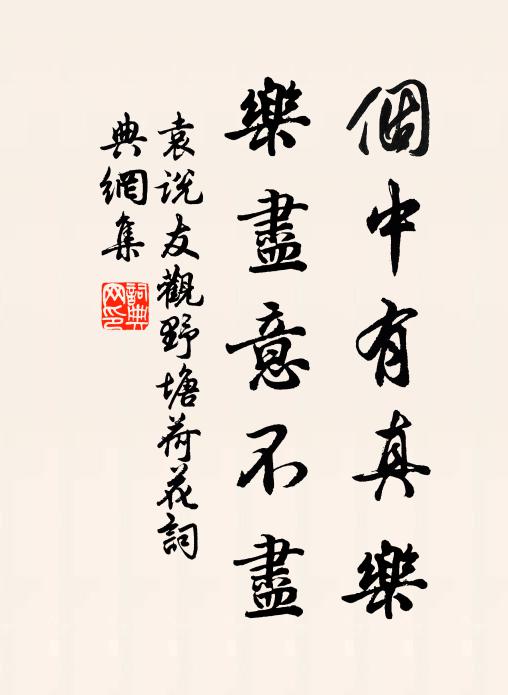 個中有真樂
樂盡意不盡
袁說友觀野塘荷花詞
典網集
詞典
网印